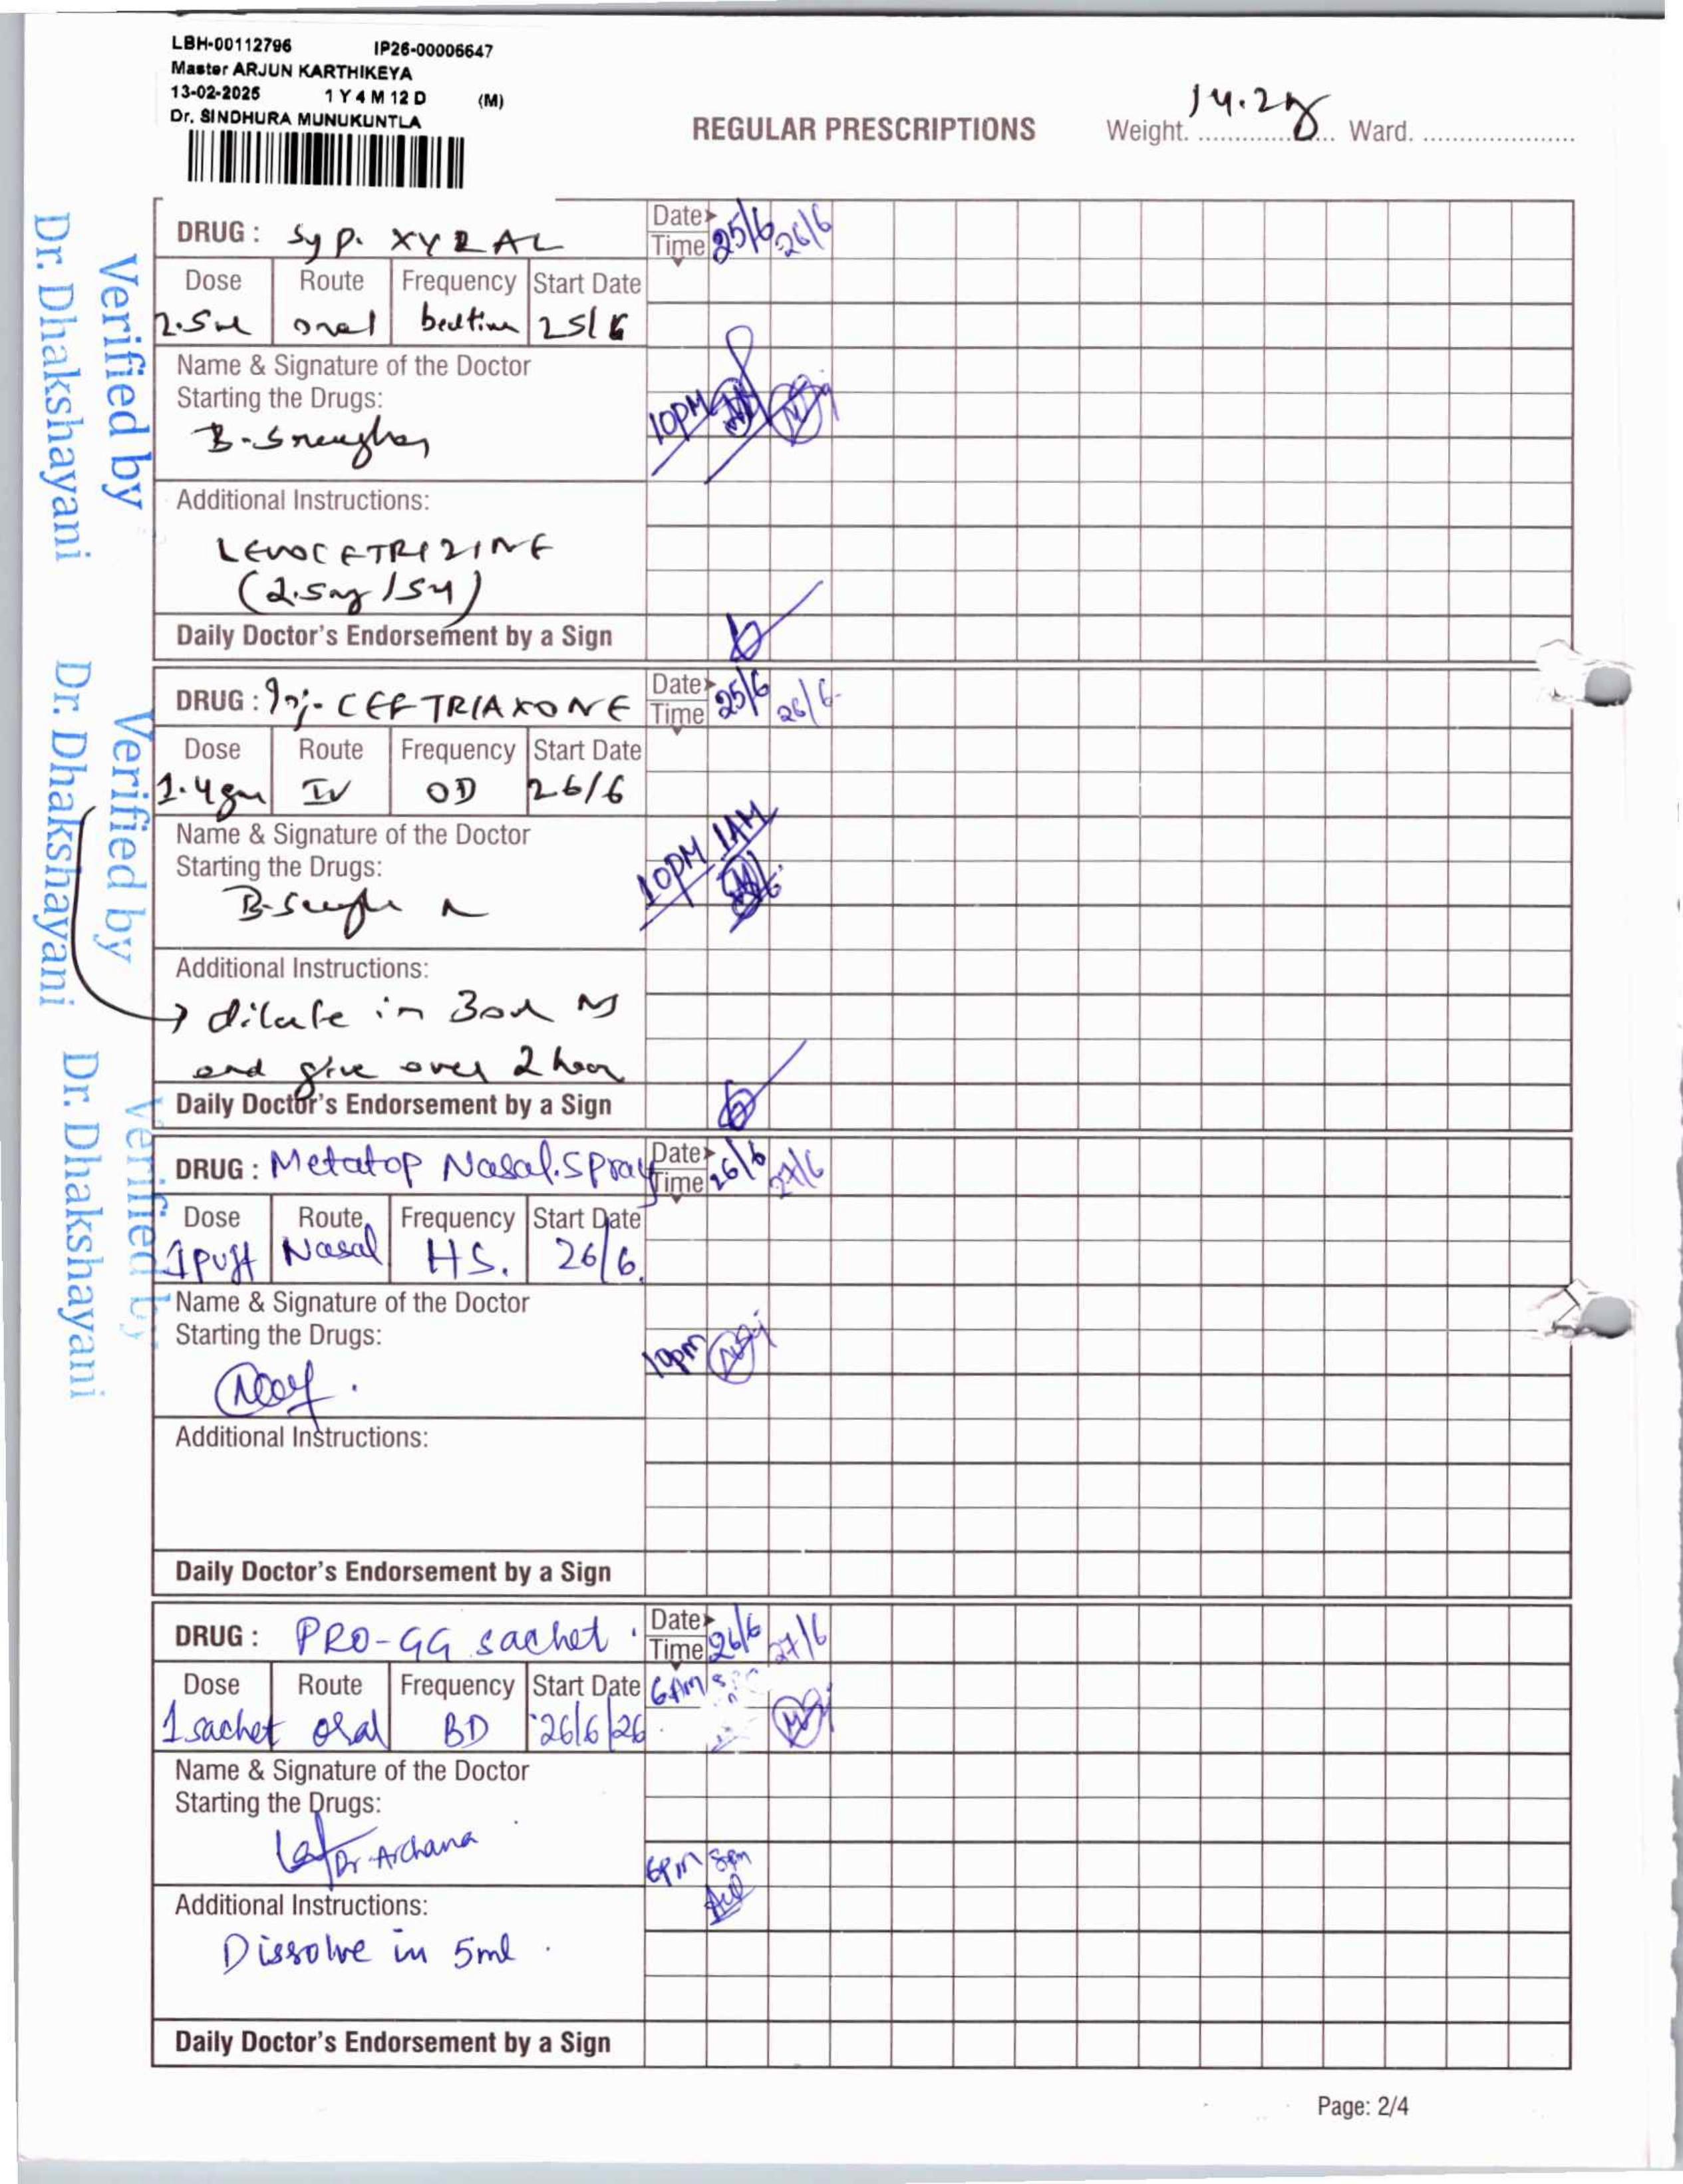 LBH-00112796 IP26-00006647
Master ARJUN KARTHIKEYA
13-02-2025 1 Y 4 M 12 D (M)
Dr. SINDHURA MUNUKUNTLA
REGULAR PRESCRIPTIONS Weight. 14.2 Ward.
DRUG : Syp. XYZAL Date 25/6 26/6
Time
Dose Route Frequency Start Date
2.5ml oral bedtime 25/6
Name & Signature of the Doctor
Starting the Drugs:
10PM
Additional Instructions:
LEVOCETRIZINE
(2.5mg/5ml)
Daily Doctor's Endorsement by a Sign
DRUG : Inj. CEFTRIAXONE Date 25/6 26/6
Time
Dose Route Frequency Start Date
1.4gm IV OD 26/6
Name & Signature of the Doctor
Starting the Drugs:
10PM 1AM
Additional Instructions:
→ dilute in 30ml NS
and give over 2 hour
Daily Doctor's Endorsement by a Sign
DRUG : Metatop Nasal.Spray Date 26/6 27/6
Time
Dose Route Frequency Start Date
1puff Nasal HS. 26/6.
Name & Signature of the Doctor
Starting the Drugs:
10pm
Additional Instructions:
Daily Doctor's Endorsement by a Sign
DRUG : PRO-GG sachet. Date 26/6 27/6
Time
Dose Route Frequency Start Date 6AM
1 sachet oral BD 26/6/26
Name & Signature of the Doctor
Starting the Drugs:
Dr Archana
6pm 8pm
Additional Instructions:
Dissolve in 5ml.
Daily Doctor's Endorsement by a Sign
Page: 2/4
Verified by
Dr. Dhakshayani
Verified by
Dr. Dhakshayani
Verified by
Dr. Dhakshayani